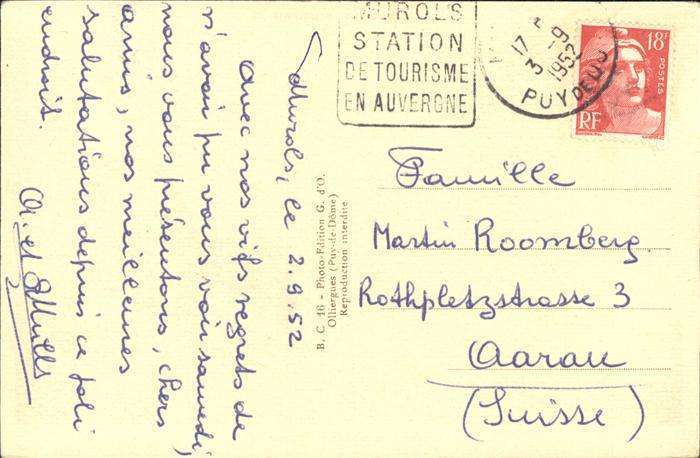 Murols, le 2.9.52
Avec nos vifs regrets de
n'avoir pu vous voir samedi,
nous vous présentons, chers
amis, nos meilleures
salutations depuis ce joli
endroit.
B. C. 16 - Photo-Edition G. d'O.
Olliergues (Puy-de-Dôme)
Reproduction interdite
MUROLS
STATION
DE TOURISME
EN AUVERGNE
17
3 - 9
1952
PUY DE DO
18F
POSTES
RF
Famille
Martin Roomberg
Rothpletzstrasse 3
Aarau
(Suisse)